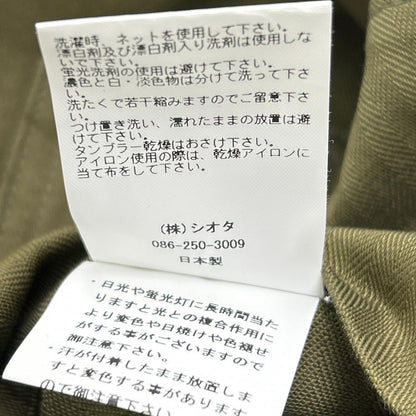 洗濯時、ネットを使用して下さい。
漂白剤及び漂白剤入り洗剤は使用しな
いで下さい。
蛍光洗剤の使用は避けて下さい。
濃色と白・淡色物は分けて洗って下さ
い。
洗たくで若干縮みますのでご留意下さ
い。
つけ置き洗い、濡れたままの放置は避
けて下さい。
タンブラー乾燥はおさけ下さい。
アイロン使用の際は、乾燥アイロンに
当て布をして下さい。
(株)シオタ
086-250-3009
日本製
・日光や蛍光灯に長時間当た
りますと光との複合作用に
より変色や日焼けや色褪せ
がする事がございますので
御注意下さい。
汗が付着したまま放置しま
すと変色する事があります
ので御注意下さい